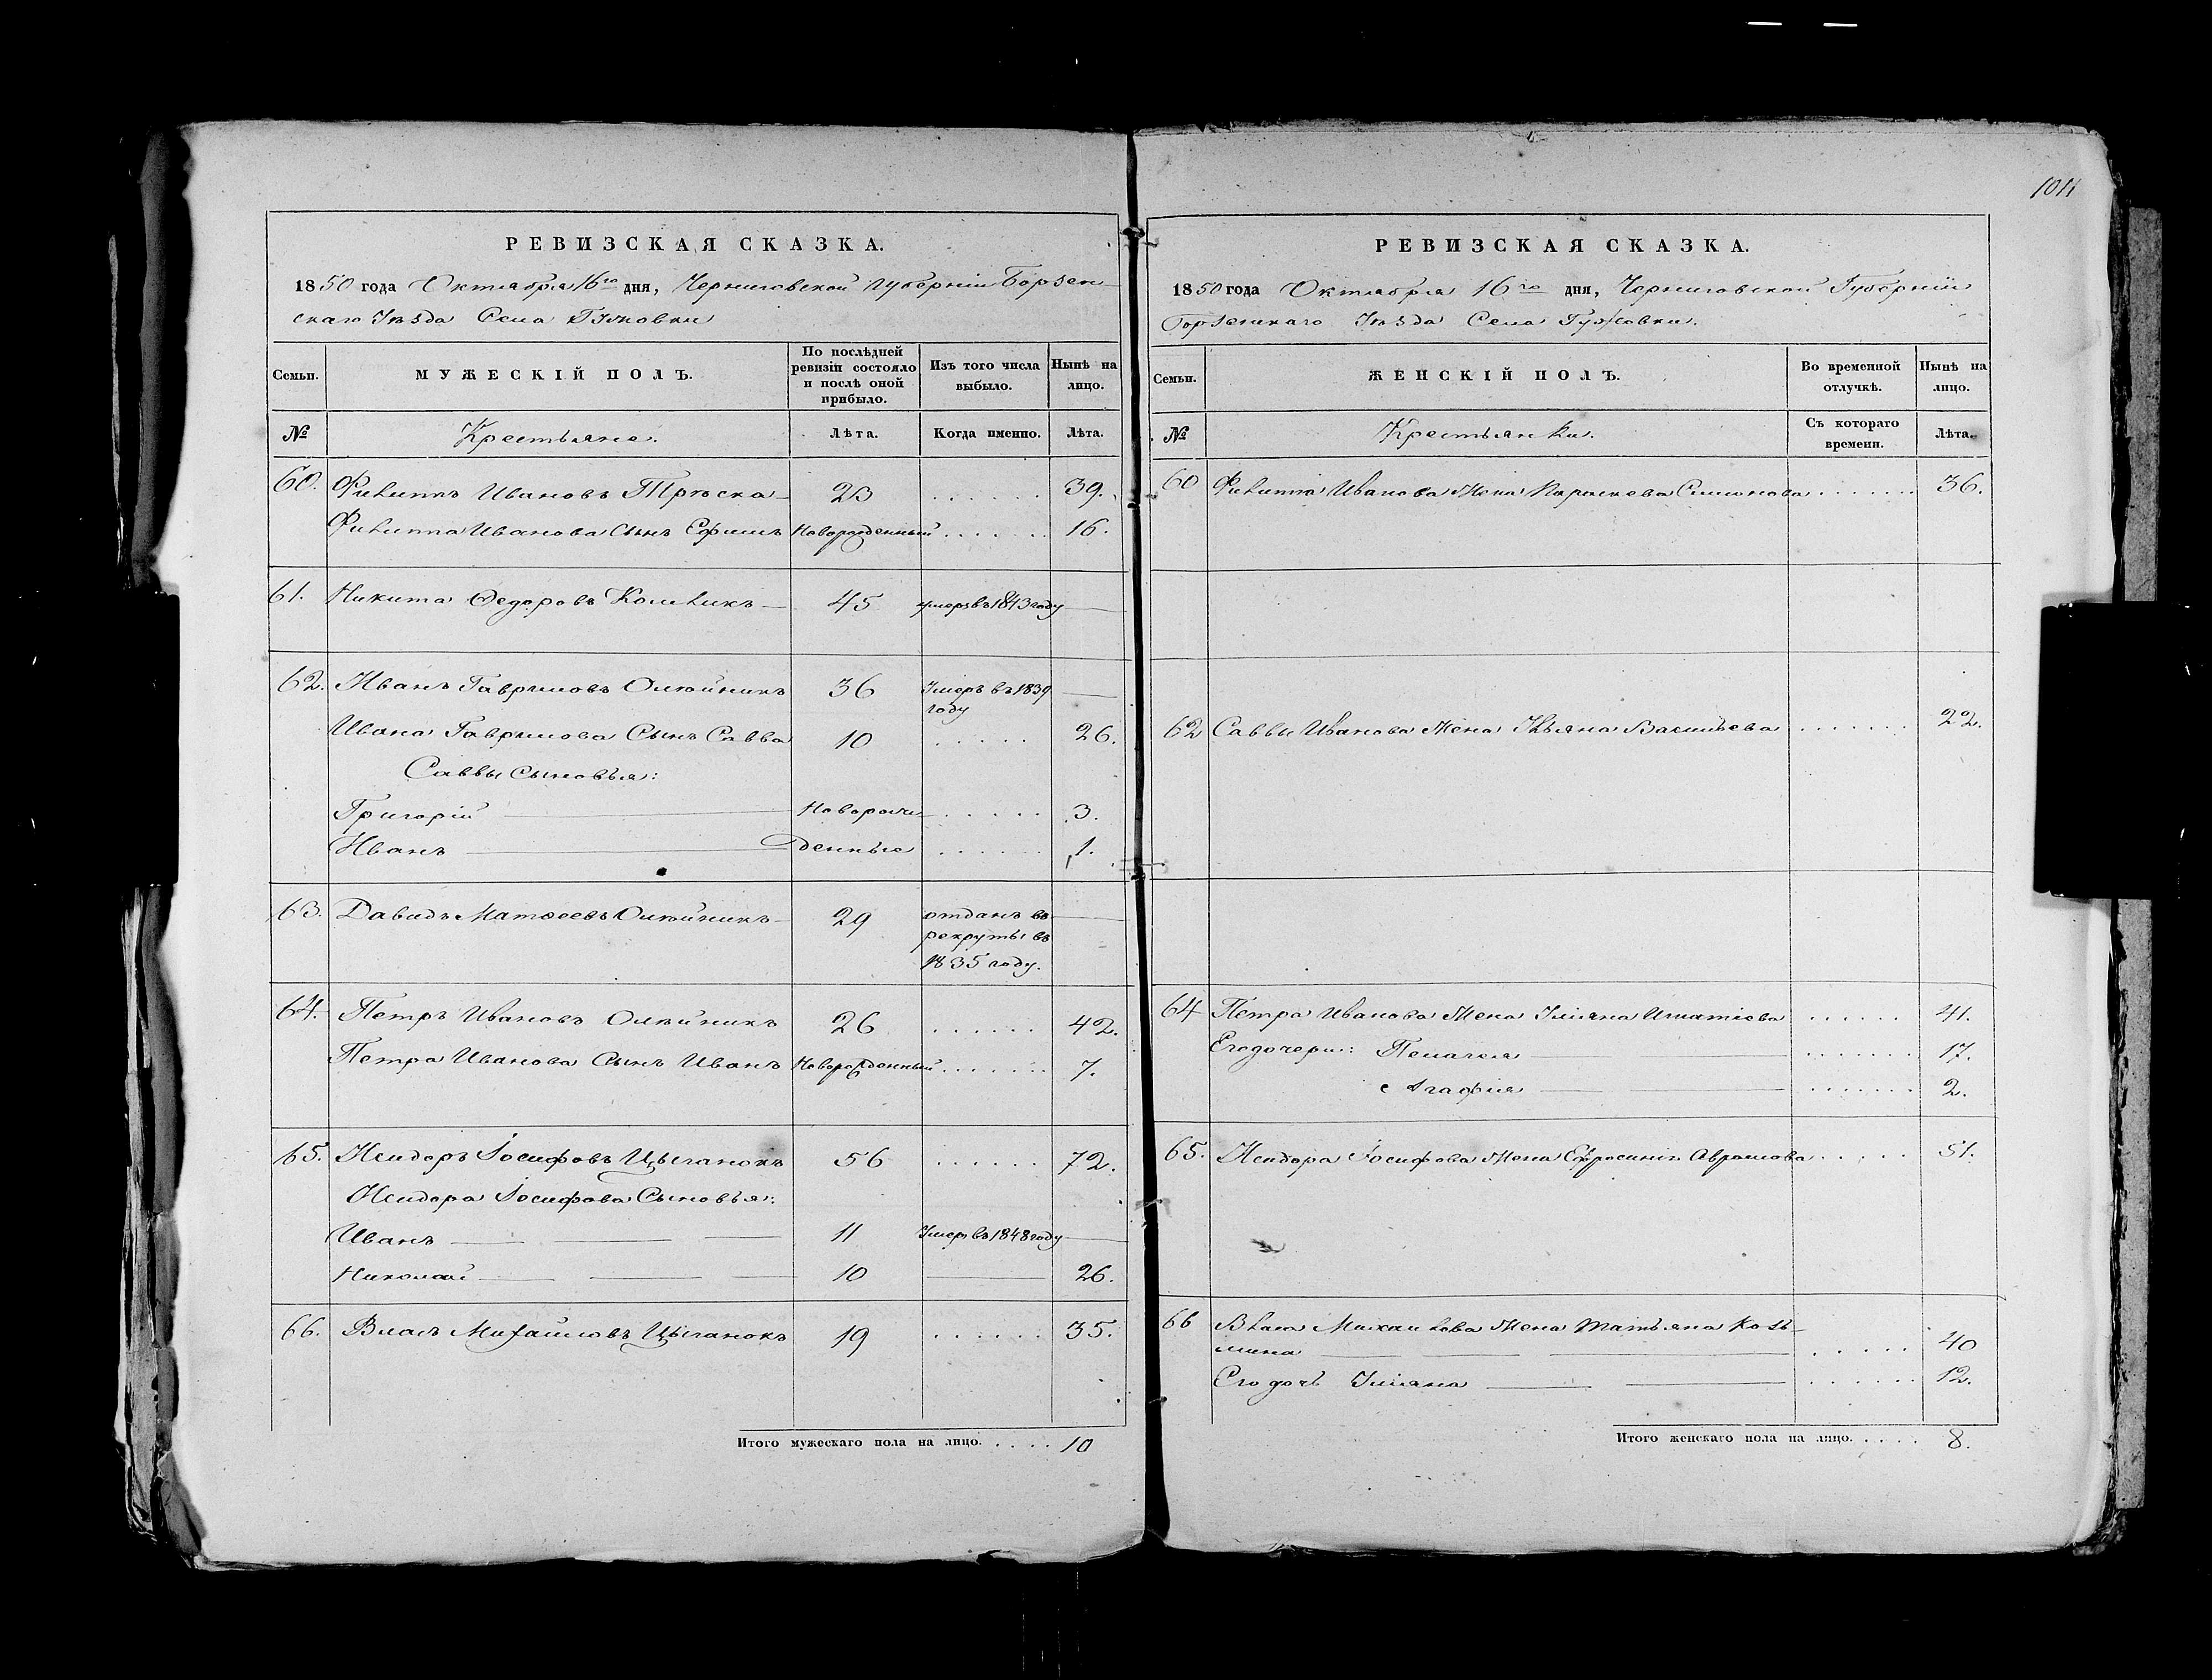 1011
РЕВИЗСКАЯ СКАЗКА.
1850 года Октября 16го дня, Черниговской Губерніи Борзен-
скаго Уѣзда Села Гужовки
Семьи. МУЖЕСКІЙ ПОЛЪ. По послѣдней ревизіи состояло и послѣ оной прибыло. Изъ того числа выбыло. Нынѣ на лицо.
№ Крестьяне. Лѣта. Когда именно. Лѣта.
60. Филипъ Ивановъ 23 . . . . . . 39.
Филипа Иванова Сынъ Ефимъ Новорожденный . . . . . . 16.
61. Никита Федоровъ 45 умеръ въ 1843 году —
62. Иванъ Гавриловъ Олѣйникъ 36 Умеръ въ 1839
году
Ивана Гаврилова Сынъ Савва 10 . . . . . 26.
Саввы Сыновья:
Григорій — Новорож . . . . . 3.
Иванъ — денные . . . . . . 1.
63. Давидъ Матвеевъ Олѣйникъ — 29 отданъ въ
рекруты въ
1835 году.
64. Петръ Ивановъ Олѣйникъ 26 . . . . . . 42.
Петра Иванова Сынъ Иванъ Новорожденный . . . . . . 7.
65. Исидоръ Іосифовъ Цыганокъ 56 . . . . . . 72.
Исидора Іосифова Сыновья:
Иванъ — — — 11 Умеръ въ 1848 году —
Николай — — — 10 — 26.
66. Власъ Михайловъ Цыганокъ 19 . . . . . . 35.
Итого мужескаго пола на лицо. . . . . 10
РЕВИЗСКАЯ СКАЗКА.
1850 года Октября 16го дня, Черниговской Губерніи
Борзенскаго Уѣзда Села Гужовки.
Семьи. ЖЕНСКІЙ ПОЛЪ. Во временной отлучкѣ. Нынѣ на лицо.
№ Крестьянки. Съ котораго времени. Лѣта.
60 Филипа Иванова Жена Параскева Симонова . . . . . . 36.
62 Саввы Иванова Жена Ульяна Васильева . . . . . . 22.
64 Петра Иванова Жена Уліяна Игнатіева . . . . . . 41.
Его дочери: Пелагея — . . . . . . 17.
Агафія — . . . . . . 2.
65. Исидора Іосифова Жена Ефросинія Аврамова . . . . . 51.
66 Власа Михайлова Жена Татьяна Козь-
мина — — — . . . . . 40
Его дочь Уліяна — — . . . . . . 12.
Итого женскаго пола на лицо. . . . . 8.